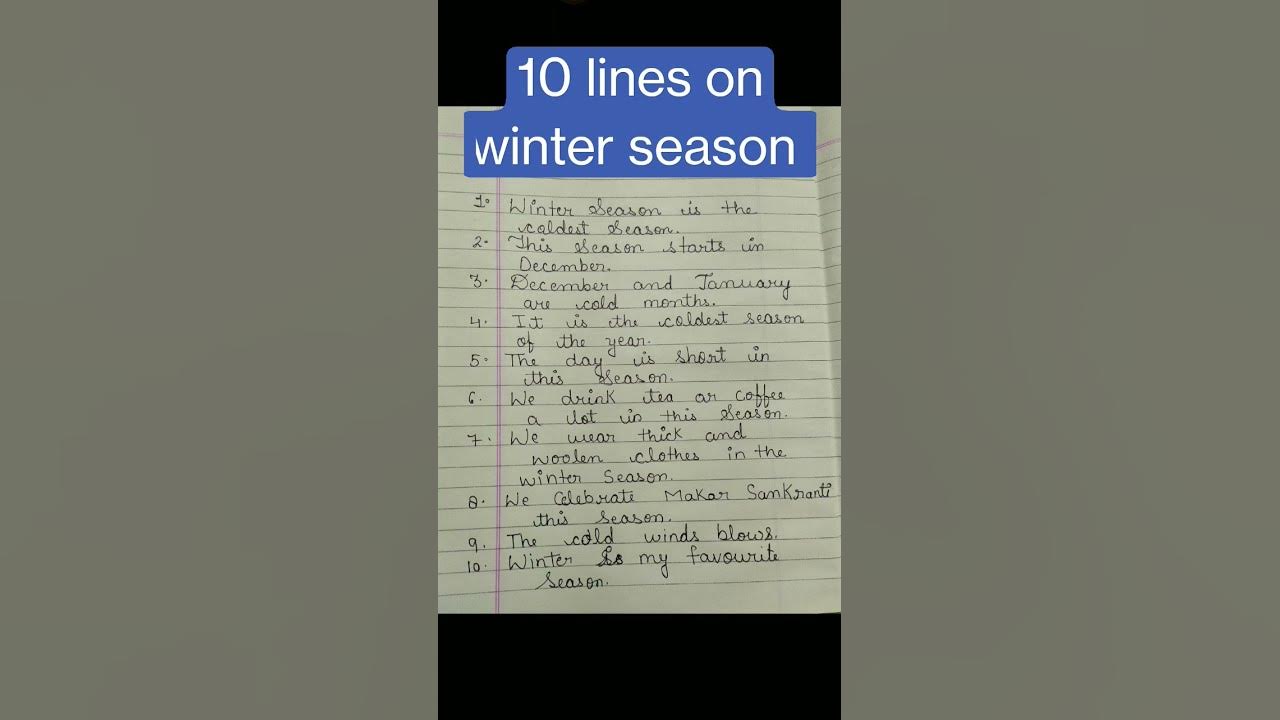 10 lines on
winter season
1. Winter Season is the
coldest Season.
2. This Season starts in
December.
3. December and January
are cold months.
4. It is the coldest season
of the year.
5. The day is short in
this Season.
6. We drink tea or coffee
a lot in this Season.
7. We wear thick and
woolen clothes in the
winter Season.
8. We Celebrate Makar Sankranti
this Season.
9. The cold winds blows.
10. Winter is my favourite
Season.